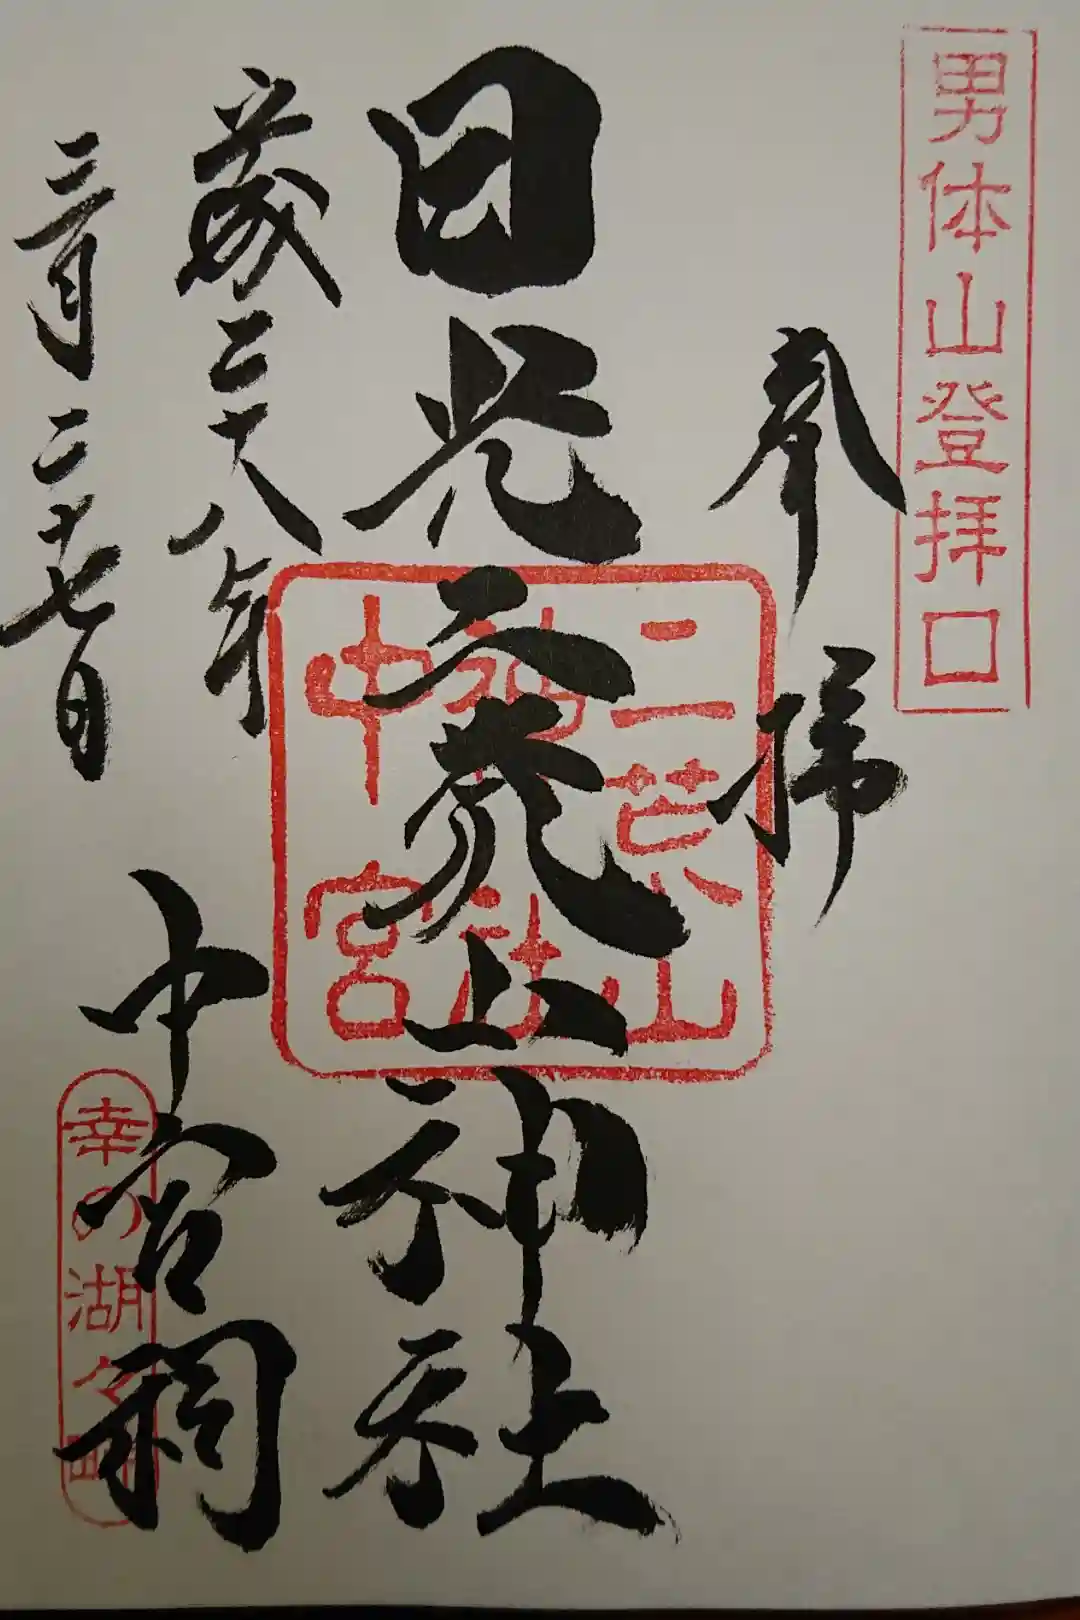 男体山登拝口
奉拝
日光二荒山神社
二荒山
神社
中宮
中宮祠
歳二十八年
三月二十七日
幸の湖